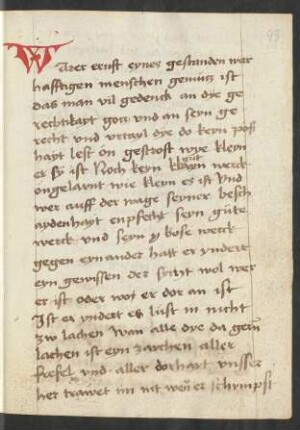 93
Warer ernst eynes gestanden war
hafftigen menschen gemütz ist
das man vil gedenck an dye ge
rechtikayt gotz vnd an seyn ge
recht vnd vrtayl dye do keyn poß
hayt lest on gestrost wye kleyn
er sy ist Noch keyn klayn gut werck
ongelarnt wie kleyn es ist Vnd
wer auff der wage seyner besch
aydenhayt enpfecht seyn güte
werck vnd seyn bose werck
gegen eynander hatt er yndert
eyn gewissen der syret wol wer
er ist oder wor er dor an ist
Ist er yndert es lüst in nicht
zw lachen Wan alle dye da gern
lachen ist eyn zaychen aller
frefel vnd aller dorhayt vnsser
her trawet im nit wen er schrympft